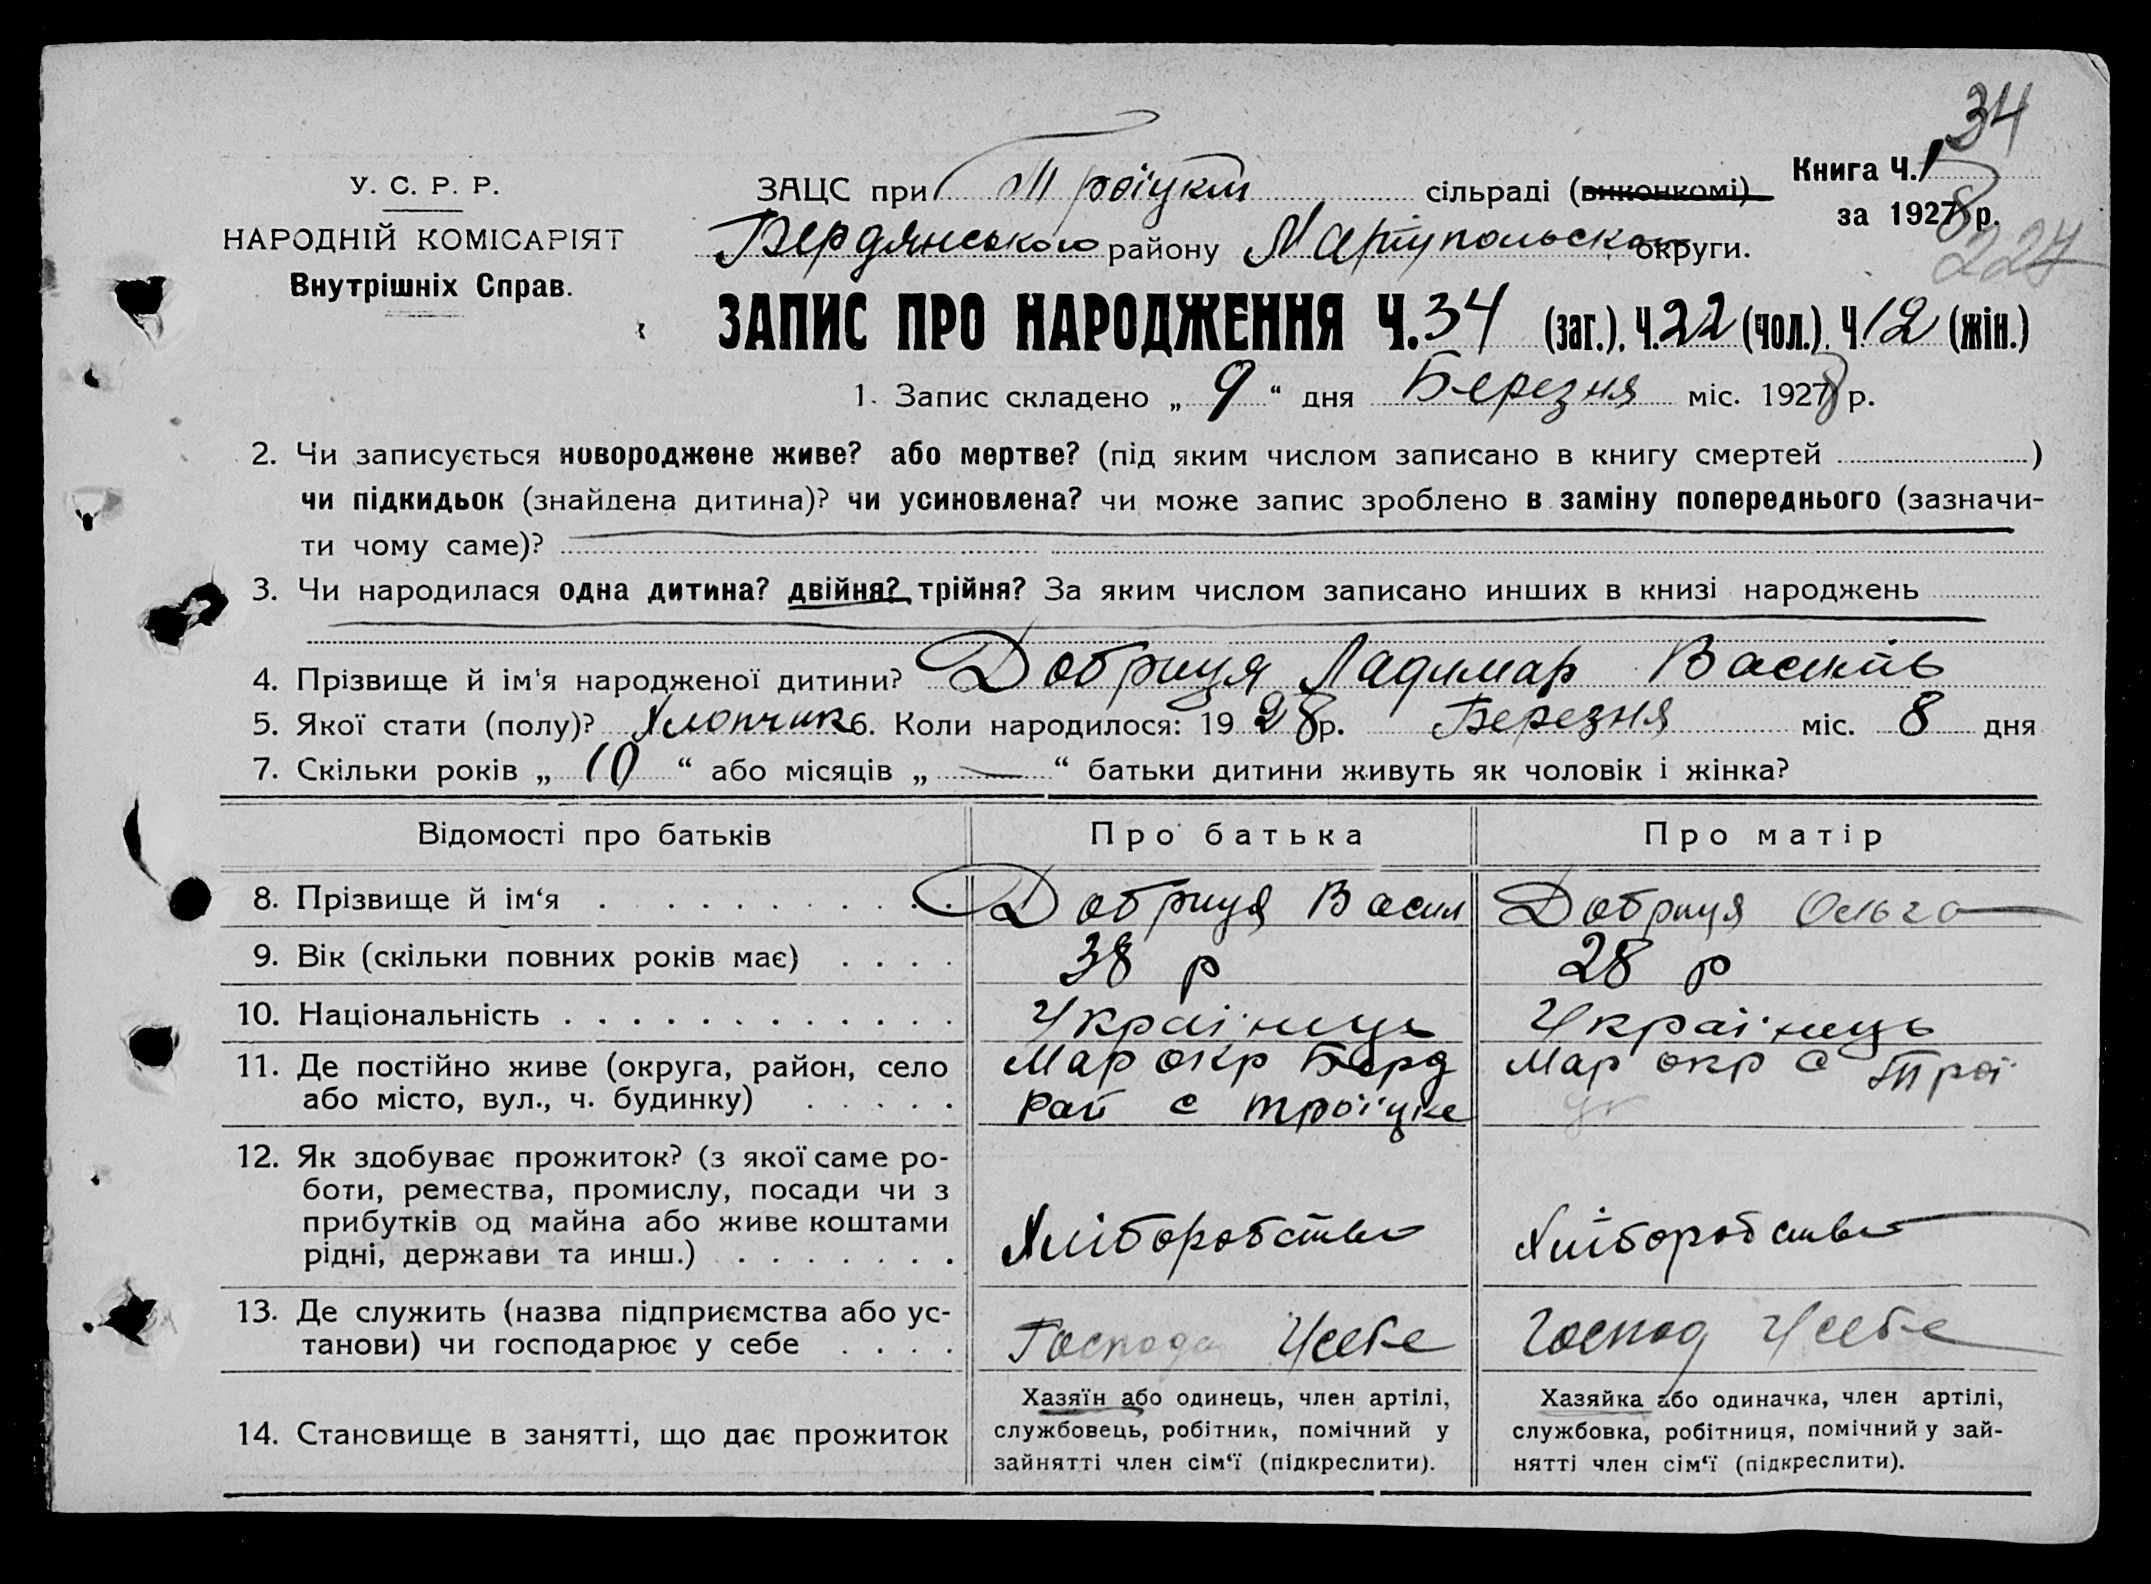 34
У. С. Р. Р.
НАРОДНІЙ КОМІСАРІЯТ
Внутрішніх Справ.
ЗАЦС при Троіцкій сільраді (виконкомі)
Книга Ч. 1
за 1928 р.
Бердянського району Маріупольскої округи.
227
ЗАПИС ПРО НАРОДЖЕННЯ Ч. 34 (заг.). Ч. 22 (чол.). Ч 12 (жін.)
1. Запис складено „ 9 “ дня Березня міс. 1928 р.
2. Чи записується новороджене живе? або мертве? (під яким числом записано в книгу смертей )
чи підкидьок (знайдена дитина)? чи усиновлена? чи може запис зроблено в заміну попереднього (зазначи-
ти чому саме)?
3. Чи народилася одна дитина? двійня? трійня? За яким числом записано инших в книзі народжень
4. Прізвище й ім'я народженої дитини? Добриця Ладимар Васил
5. Якої стати (полу)? Хлопчик 6. Коли народилося: 19 28 р. Березня міс. 8 дня
7. Скільки років „ 10 “ або місяців „ — “ батьки дитини живуть як чоловік і жінка?
Відомості про батьків Про батька Про матір
8. Прізвище й ім‘я Добриця Васил Добриця Ольга
9. Вік (скільки повних років має) 38 р 28 р
10. Національність Україиць Україиець
11. Де постійно живе (округа, район, село Мар окр Берд Мар окр с Трої
або місто, вул., ч. будинку) рай с Троїцке цк
12. Як здобуває прожиток? (з якої саме ро-
боти, ремества, промислу, посади чи з
прибутків од майна або живе коштами Хліборобство Хліборобство
рідні, держави та инш.)
13. Де служить (назва підприємства або ус-
танови) чи господарює у себе Господа Усебе Господ Усебе
Хазяїн або одинець, член артілі, Хазяйка або одиначка, член артілі,
14. Становище в занятті, що дає прожиток службовець, робітник, помічний у службовка, робітниця, помічний у зай-
зайнятті член сім‘ї (підкреслити). нятті член сім‘ї (підкреслити).